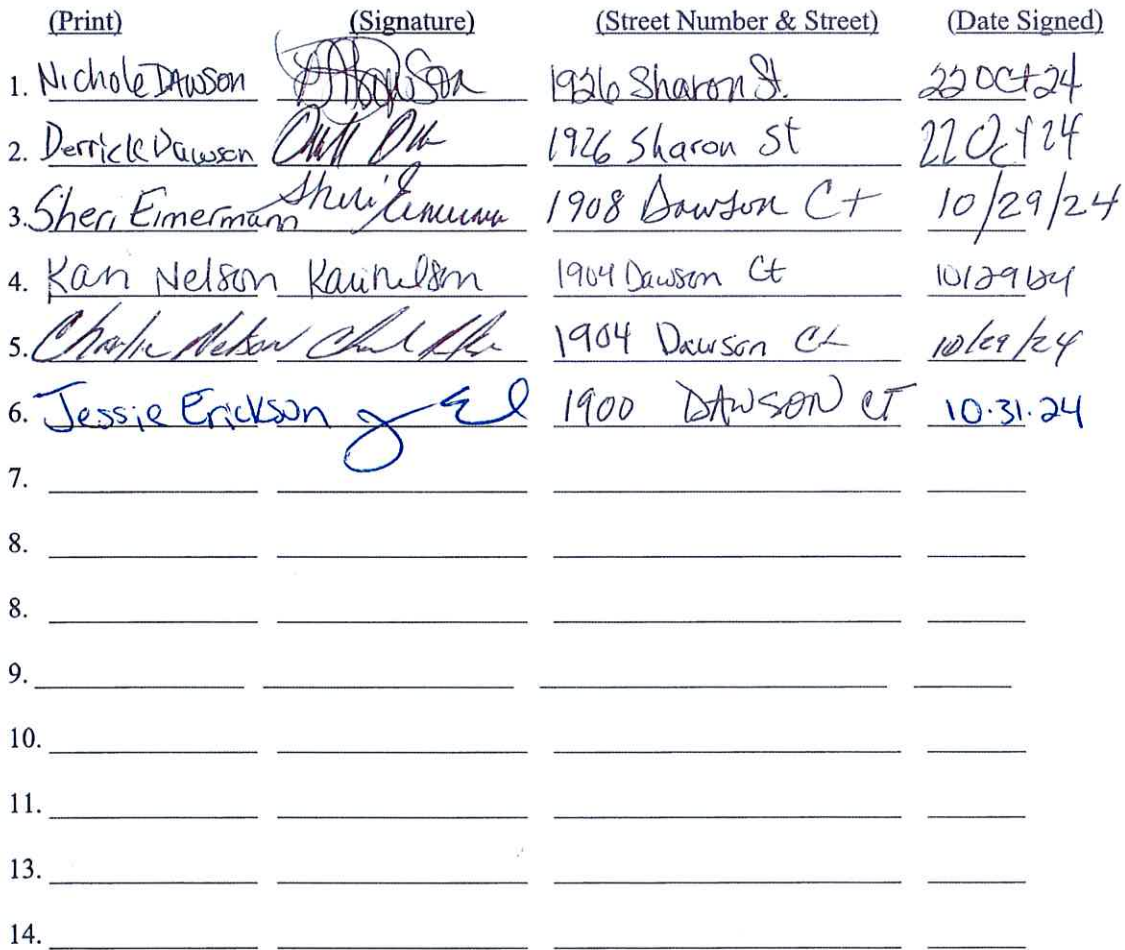 (Print) (Signature) (Street Number & Street) (Date Signed)
1. Nichole Dawson 1926 Sharon St. 22 Oct 24
2. Derrick Dawson 1926 Sharon St 22 Oct 24
3. Sheri Eimermann Sheri 1908 Dawson Ct 10/29/24
4. Kari Nelson Kari Nelson 1904 Dawson Ct 10/29/24
5. Charlie Nelson 1904 Dawson Ct 10/29/24
6. Jessie Erickson 1900 DAWSON CT 10.31.24
7.
8.
8.
9.
10.
11.
13.
14.